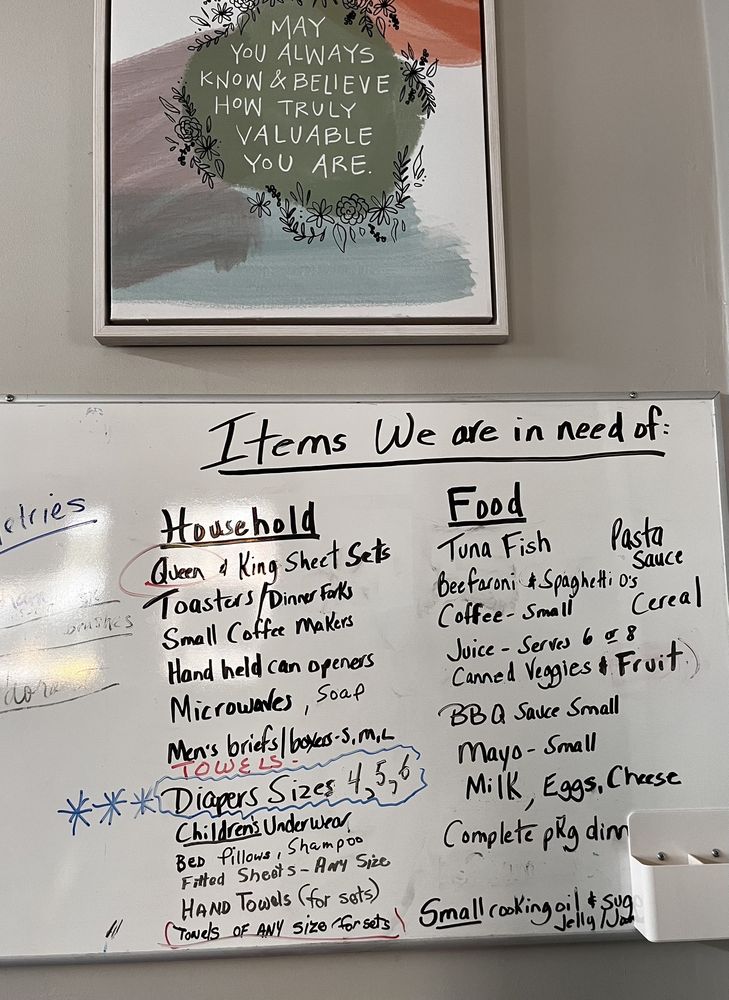 MAY
YOU ALWAYS
KNOW & BELIEVE
HOW TRULY
VALUABLE
YOU ARE.
Items We are in need of:
Household
Queen & King Sheet Sets
Toasters/Dinner Forks
Small Coffee Makers
Hand held can openers
Microwaves, Soap
Men's briefs/boxers-S,M,L
TOWELS-
***Diapers Sizes 4,5,6
Children's Underwear
BED Pillows, Shampoo
Fitted Sheets - ANY Size
HAND Towels (for sets)
(Towels OF ANY size for sets)
Food
Tuna Fish
Pasta
Sauce
Beefaroni & Spaghetti O's
Cereal
Coffee - Small
Juice - Serves 6 or 8
Canned Veggies & Fruit
BBQ Sauce Small
Mayo - Small
Milk, Eggs, Cheese
Complete pkg dinn
Small cooking oil & sug
Jelly/
brushes